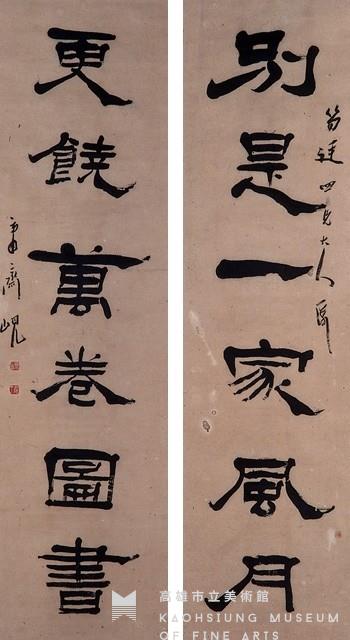 別是一家風月
四兄大人
更饒萬卷圖書
齋峴
高雄市立美術館
KAOHSIUNG MUSEUM
OF FINE ARTS